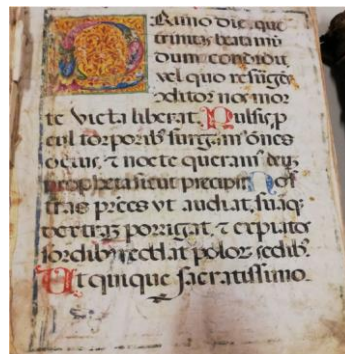 Rimo die, que
trinitas beata mū
dum condidit
vel quo resurgēs
ↄditor nos mor
te victa liberat. Pulsis, p
cul torporib⁹ surgam⁹ ōnes
ocius, ⁊ nocte queram⁹
prophetā sicut precipit. Nos
tras p̄ces vt audiat, suāq;
dextraʒ porrigat, ⁊ expiatos
sordib⁹ reddat poloꝝ sedib⁹.
Ut quique sacratissimo.